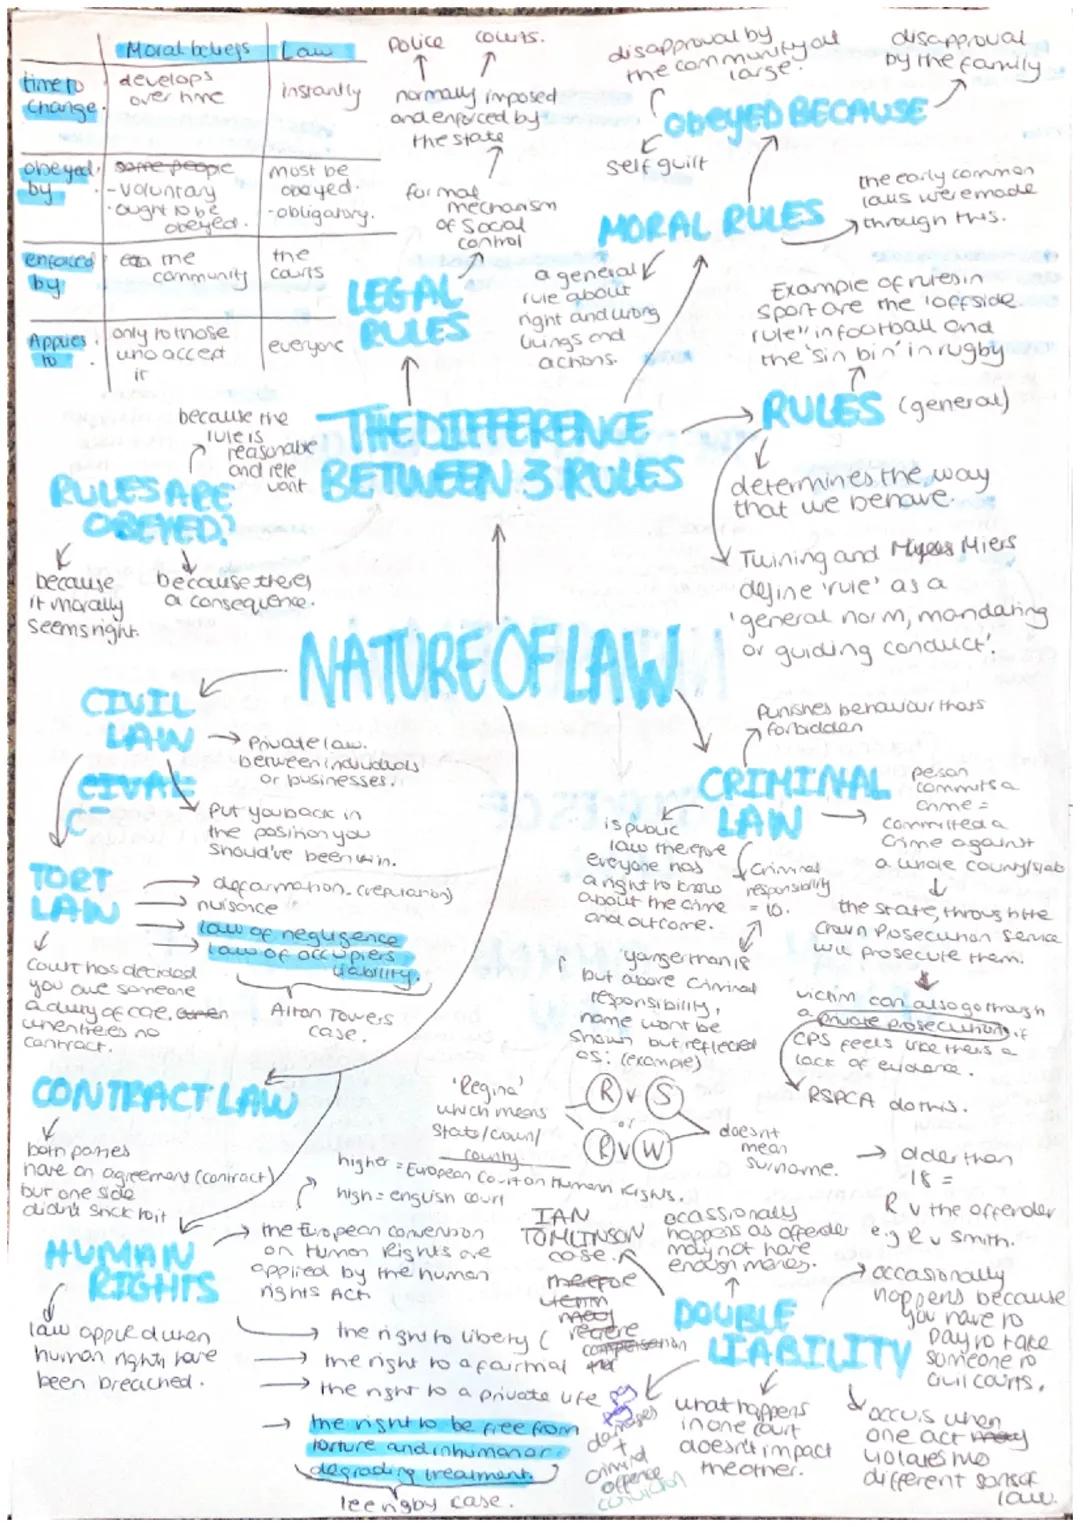 Moral beliefs
Law
time to
change.
develops
over time
instantly
obeyed
by
some people
- voluntary
- ought to be
obeyed.
must be
obeyed.
- obligatory.
enforced
by
the
community
the
courts
Applies
to
only to those
who accept
it
everyone
Police courts.
normally imposed
and enforced by
the state
formal
mechanism
of social
control
LEGAL
RULES
disapproval by
the community at
large.
disapproval
by the family
OBEYED BECAUSE
self guilt
MORAL RULES
the early common
laws were made
through this.
a general
rule about
right and wrong
livings and
actions.
Example of rules in
sport are the 'offside
rule" in football and
the 'sin bin' in rugby
RULES (general)
determines the way
that we behave.
Twining and Miers
define 'rule' as a
'general norm, mandating
or guiding conduct'.
THE DIFFERENCE
BETWEEN 3 RULES
because the
rule is
reasonable
and rele
vant
RULES ARE
OBEYED?
because
it morally
seems right.
because theres
a consequence.
NATURE OF LAW
CIVIL
LAW
Private law.
between individuals
or businesses.
CIVAL
C
Put you back in
the position you
should've been in.
TORT
LAW
defarmation. (reputation)
nuisance
law of negligence
law of occupiers
liability.
Alton Towers
case.
Court has decided
you owe someone
a duty of care, when
when theres no
contract.
CRIMINAL
LAW
Punishes behaviour thats
forbidden
person
commits a
crime =
committed a
crime against
a whole country/state
is public
law therefore
everyone has
a right to know
about the crime
and outcome.
Criminal
responsibility
= 10.
the state, through the
Crown Prosecution Service
will prosecute them.
younger than 18
but above criminal
responsibility,
name wont be
shown but reflected
as: (example)
victim can also go through
a private prosecution, if
CPS feels like theirs a
lack of evidence.
RSPCA do this.
'Regina'
which means
State/crown/
country.
R v S
or
R v W
doesn't
mean
surname.
older than
18 =
R v the offender
e.g R v Smith.
CONTRACT LAW
both parties
have an agreement (contract)
but one side
didn't stick to it
higher = European Court on Human Rights.
high = english court
HUMAN
RIGHTS
the European convention
on Human Rights are
applied by the human
rights Act
law applied when
human rights have
been breached.
the right to liberty
the right to a fair trial
the right to a private life
the right to be free from
torture and inhuman or
degrading treatment.
lee rigby case.
IAN
TOMLINSON
case.
therefore
victim
may
receive
compensation
ocassionally
happens as offender
may not have
enough money.
DOUBLE
LIABILITY
occasionally
happens because
you have to
pay to take
someone to
civil courts.
damages
+
criminal
offence
conviction
what happens
in one court
doesn't impact
the other.
occurs when
one act may
violates two
different sorts of
law.